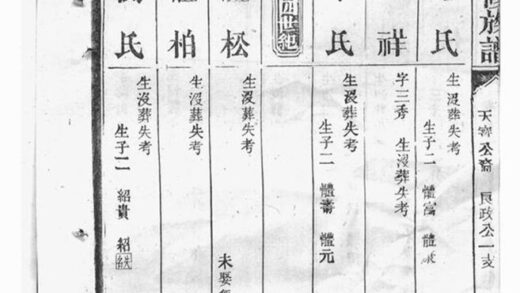 族譜
天寧公裔 良政公一支
氏
生没葬失考
生子二 體富 體
祥
字三秀 生没葬失考
氏
生没葬失考
生子二 體齋 體元
四世紀
松
生没葬失考
未娶
柏
生没葬失考
氏
生没葬失考
生子二 紹貴 紹